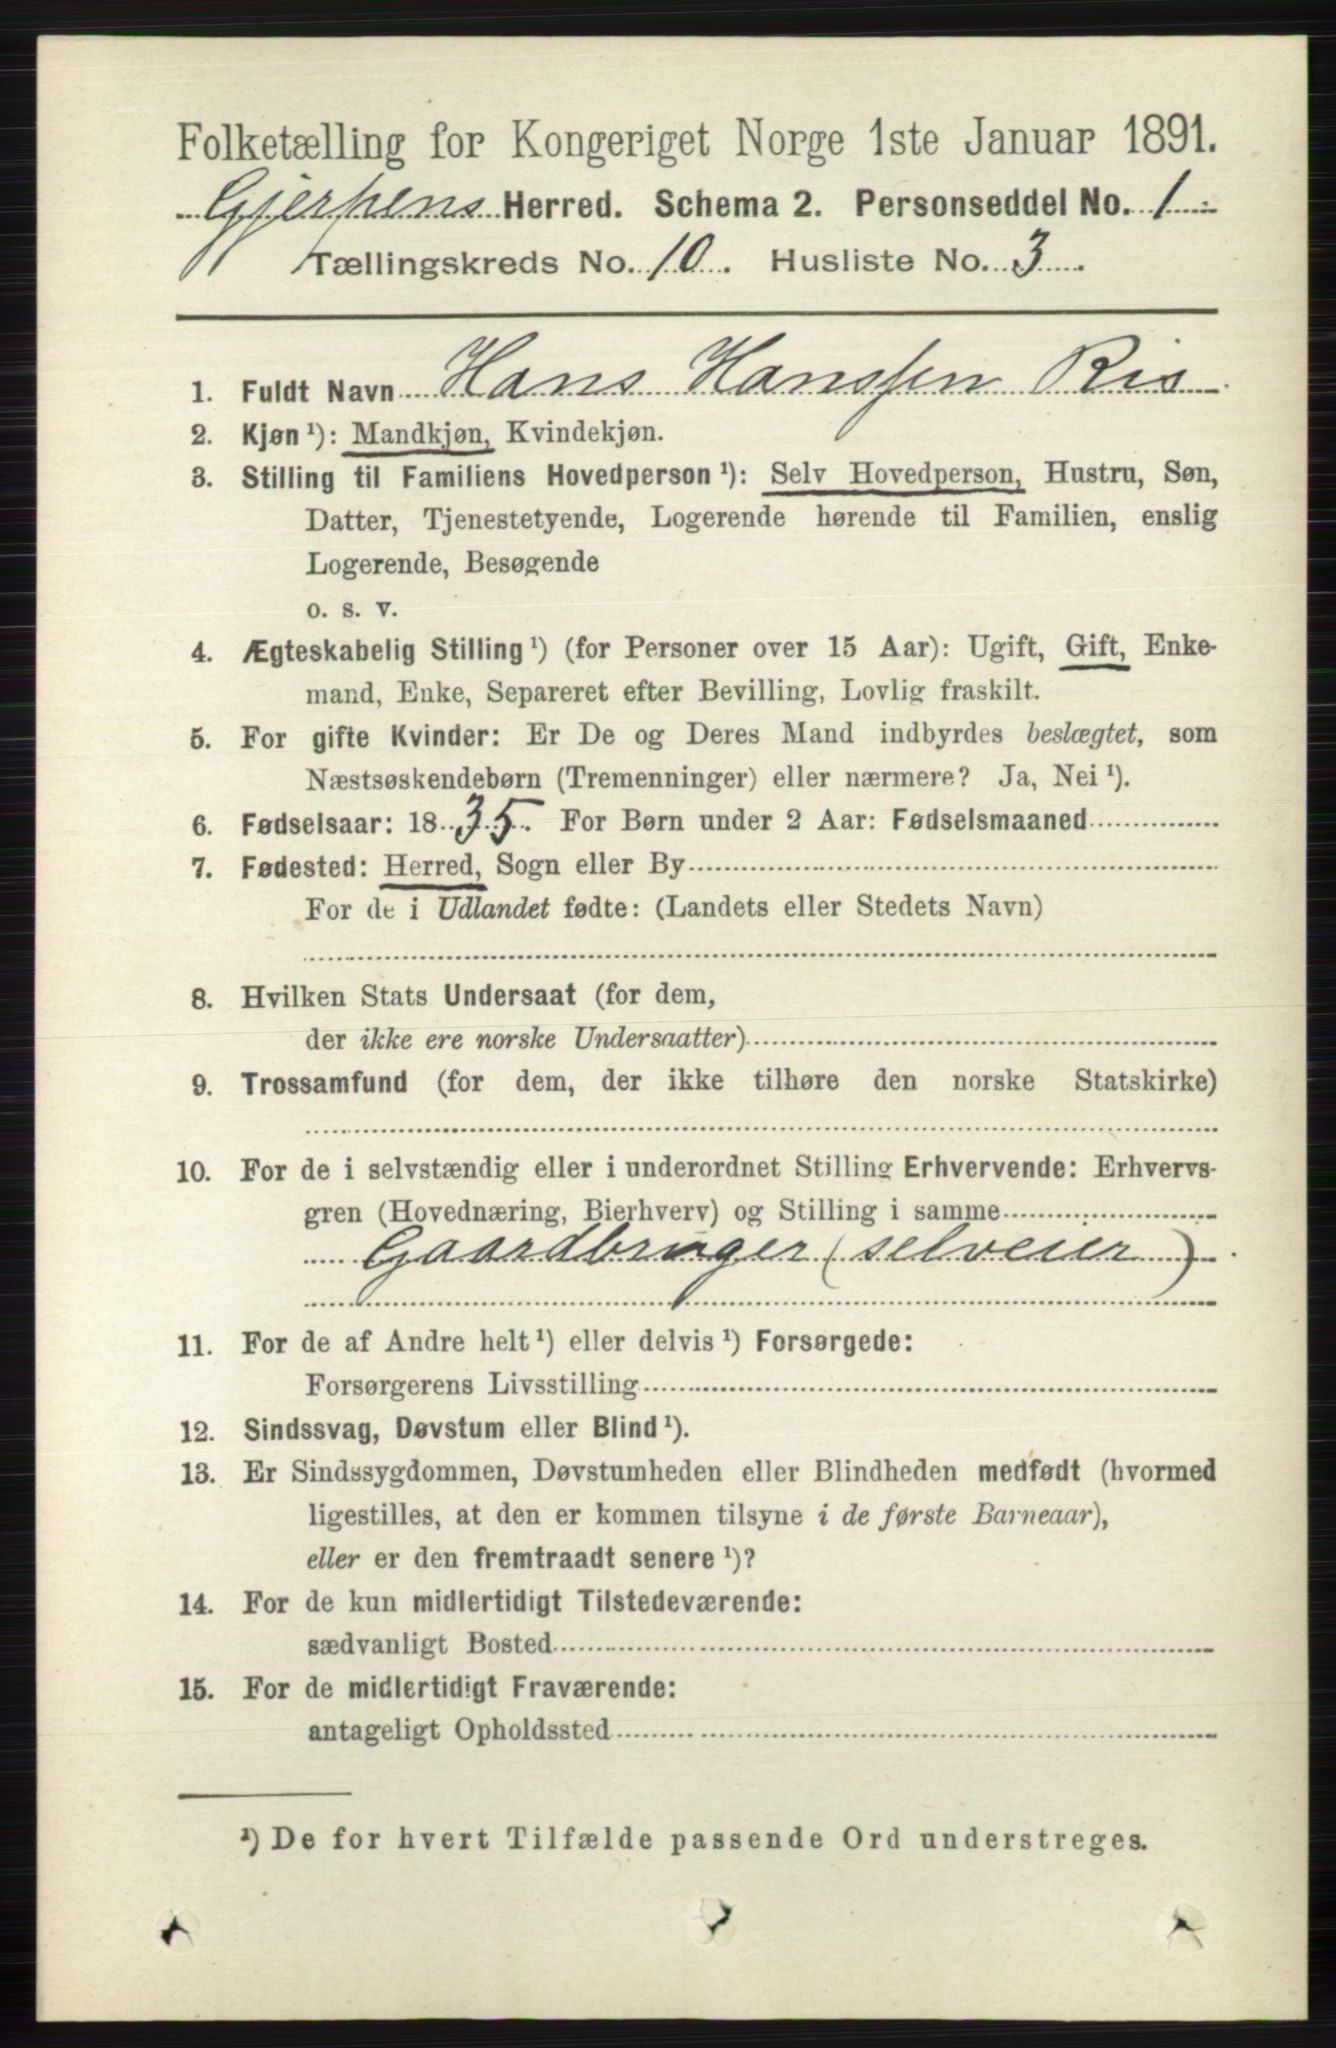 Folketælling for Kongeriget Norge 1ste Januar 1891.
Gjerpens Herred. Schema 2. Personseddel No. 1
Tællingskreds No. 10. Husliste No. 3
1. Fuldt Navn Hans Hanssen Ris
2. Kjøn ¹): Mandkjøn, Kvindekjøn.
3. Stilling til Familiens Hovedperson ¹): Selv Hovedperson, Hustru, Søn,
Datter, Tjenestetyende, Logerende hørende til Familien, enslig
Logerende, Besøgende
o. s. v.
4. Ægteskabelig Stilling ¹) (for Personer over 15 Aar): Ugift, Gift, Enke-
mand, Enke, Separeret efter Bevilling, Lovlig fraskilt.
5. For gifte Kvinder: Er De og Deres Mand indbyrdes beslægtet, som
Næstsøskendebørn (Tremenninger) eller nærmere? Ja, Nei ¹).
6. Fødselsaar: 1835. For Børn under 2 Aar: Fødselsmaaned
7. Fødested: Herred, Sogn eller By
For de i Udlandet fødte: (Landets eller Stedets Navn)
8. Hvilken Stats Undersaat (for dem,
der ikke ere norske Undersaatter)
9. Trossamfund (for dem, der ikke tilhøre den norske Statskirke)
10. For de i selvstændig eller i underordnet Stilling Erhvervende: Erhvervs-
gren (Hovednæring, Bierhverv) og Stilling i samme
Gaardbruger (selveier)
11. For de af Andre helt ¹) eller delvis ¹) Forsørgede:
Forsørgerens Livsstilling
12. Sindssvag, Døvstum eller Blind ¹).
13. Er Sindssygdommen, Døvstumheden eller Blindheden medfødt (hvormed
ligestilles, at den er kommen tilsyne i de første Barneaar),
eller er den fremtraadt senere ¹)?
14. For de kun midlertidigt Tilstedeværende:
sædvanligt Bosted
15. For de midlertidigt Fraværende:
antageligt Opholdssted
¹) De for hvert Tilfælde passende Ord understreges.